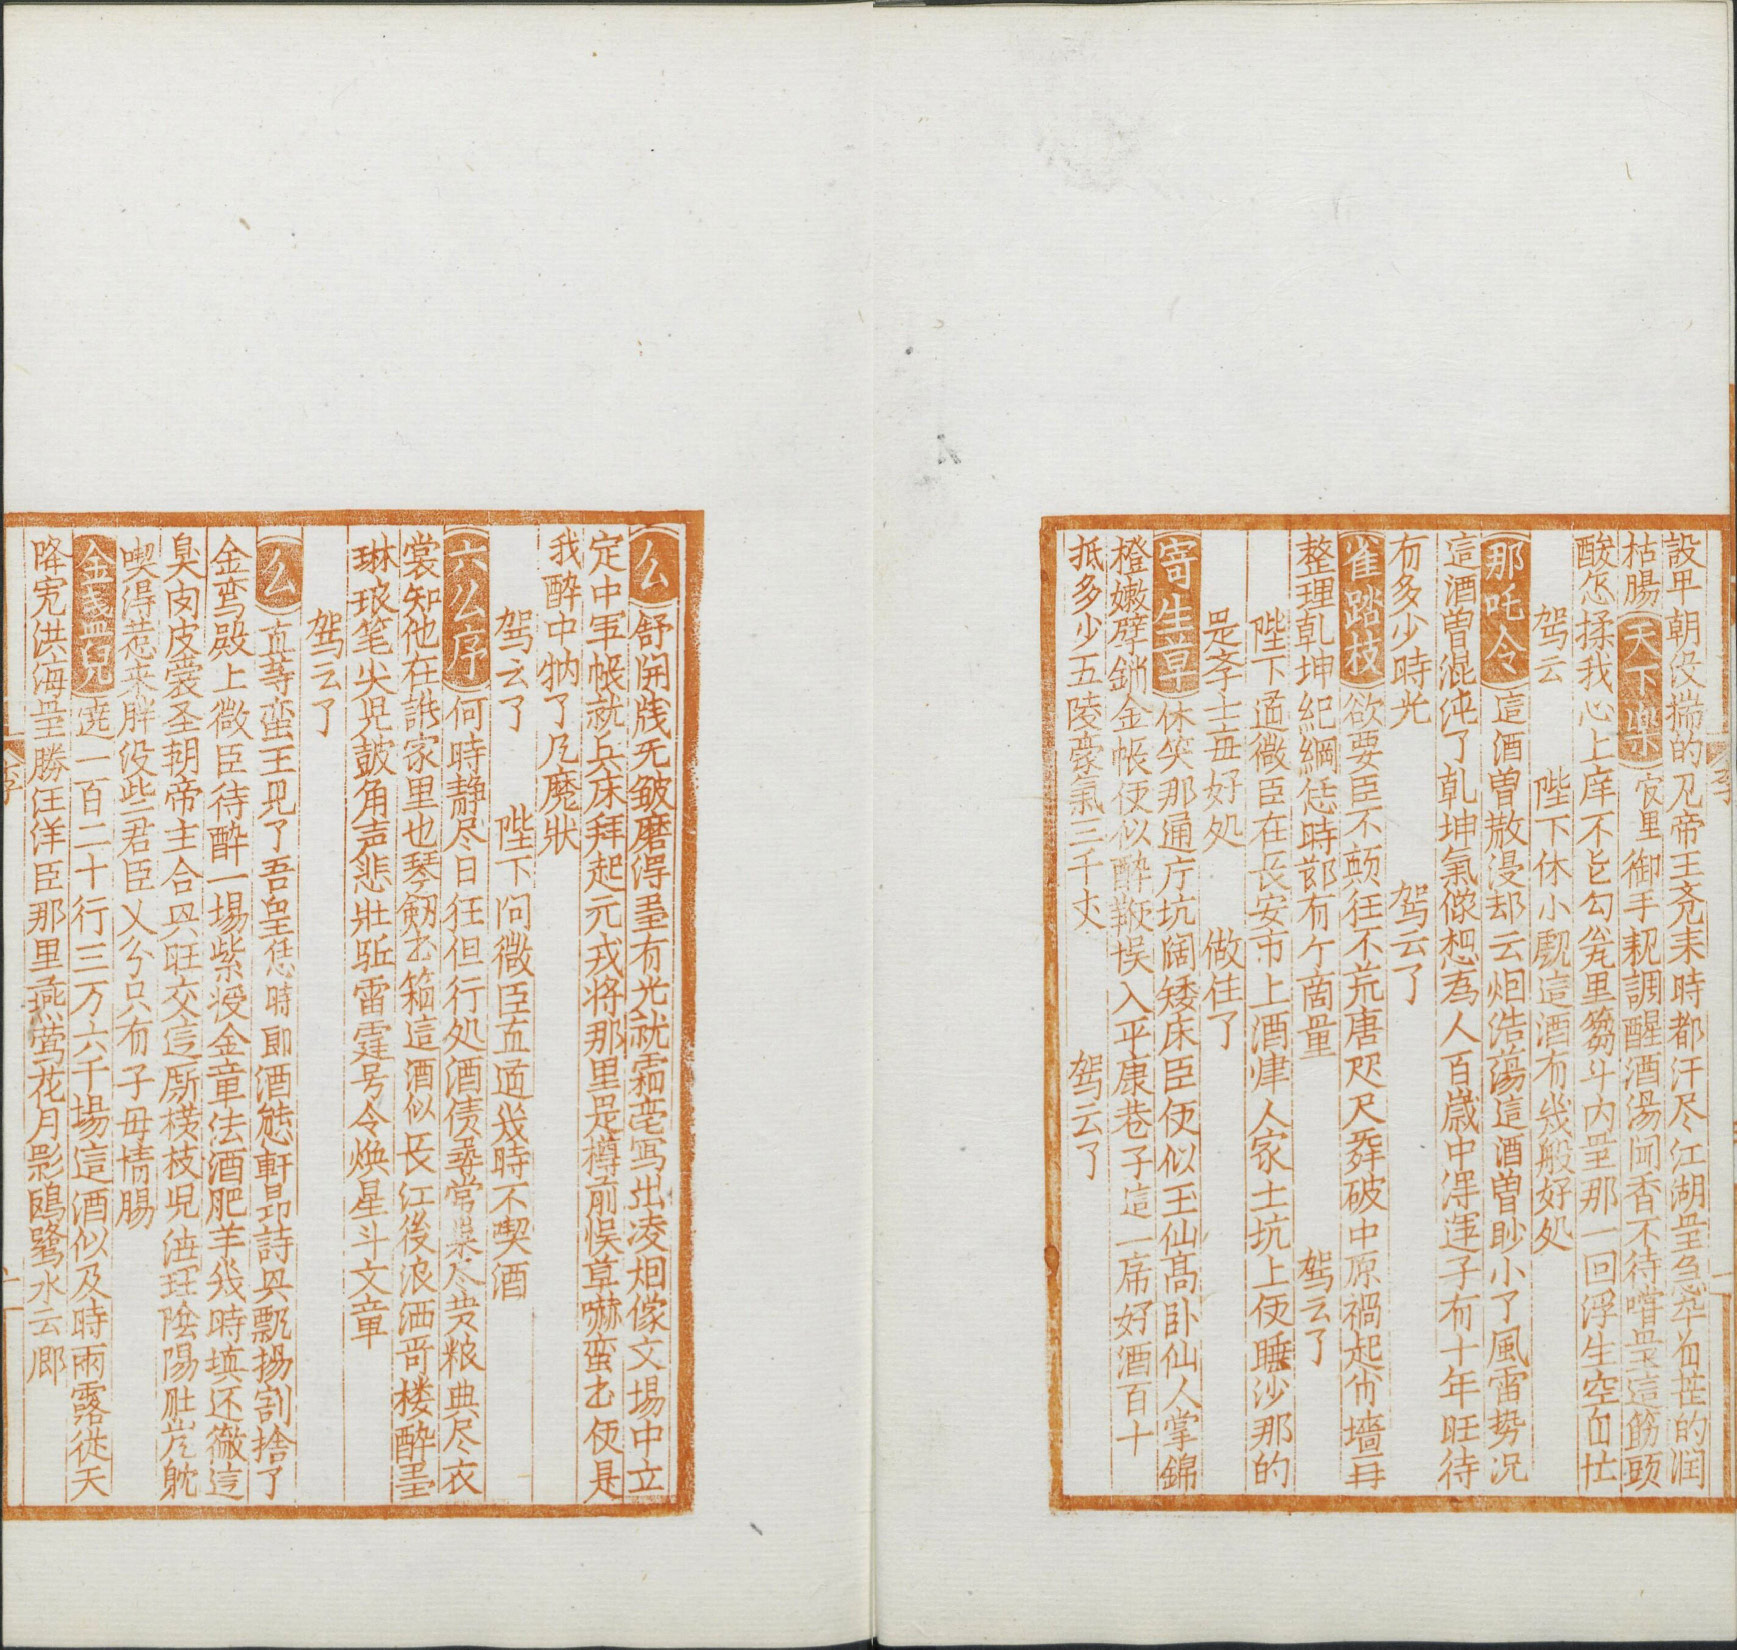 設早朝没揣的見帝王夯㐬来時都汗尽江湖呈急卒着荒的润
枯腸 天下樂 官里御手親調醒酒湯闻香不待嚐呈這筋頭
酸怎揉我心上痒不它勾瓮里篘斗内呈那一回浮生空自忙
驾云 陛下休小覷這酒有幾般好処
那吒令 這酒曽散漫却云烟浩蕩這酒曽眇小了風雷势况
這酒曽混沌了乾坤氣像想為人百歲中得運子有十年旺待
有多少時光 驾云了
雀踏枝 欲要臣不颠狂不荒唐咫尺舞破中原禍起付墻再
整理乾坤紀綱恁時莭有个商量 驾云了
陛下道微臣在長安市上酒肆人家土坑上便睡沙那的
是李士每好処 做住了
寄生草 休笑那通庁坑闊矮床臣便似玉仙高卧仙人掌錦
橙嫩劈銷金帳便似醉鞭悞入平康巷子這一席好酒百十
抵多少五陵豪氣三千丈 驾云了
么 舒開牋无皱磨得墨有光就霜毫写出凌烟像文場中立
定中軍帳就兵床拜起元戎将那里是樽前悞草嚇蛮书便是
我醉中納了凡魔狀
驾云了 陛下问微臣直道幾時不喫酒
六么序 何時静尽日狂但行処酒债尋常粜尽黄粮典尽衣
裳知他在誰家里也琴劔书箱這酒似長江後浪洒哥楼醉墨
琳琅笔尖児鼓角声悲壯駈雷霆号令焕星斗文章
驾云了
么 直等蛮王見了吾皇恁時即酒態軒昂詩興飄揚割捨了
金鸾殿上微臣待醉一場紫授金章法酒肥羊幾時填还徹這
臭肉皮裳圣朝帝主合興旺交這厮横枝児燮理陰陽肚岚躭
喫得惹来胖没些君臣义分只有子母情腸
金盏兒 遶一百二十行三万六千場這酒似及時雨露從天
降宽洪海量勝汪洋臣那里燕莺花月影鴎鷺水云鄉